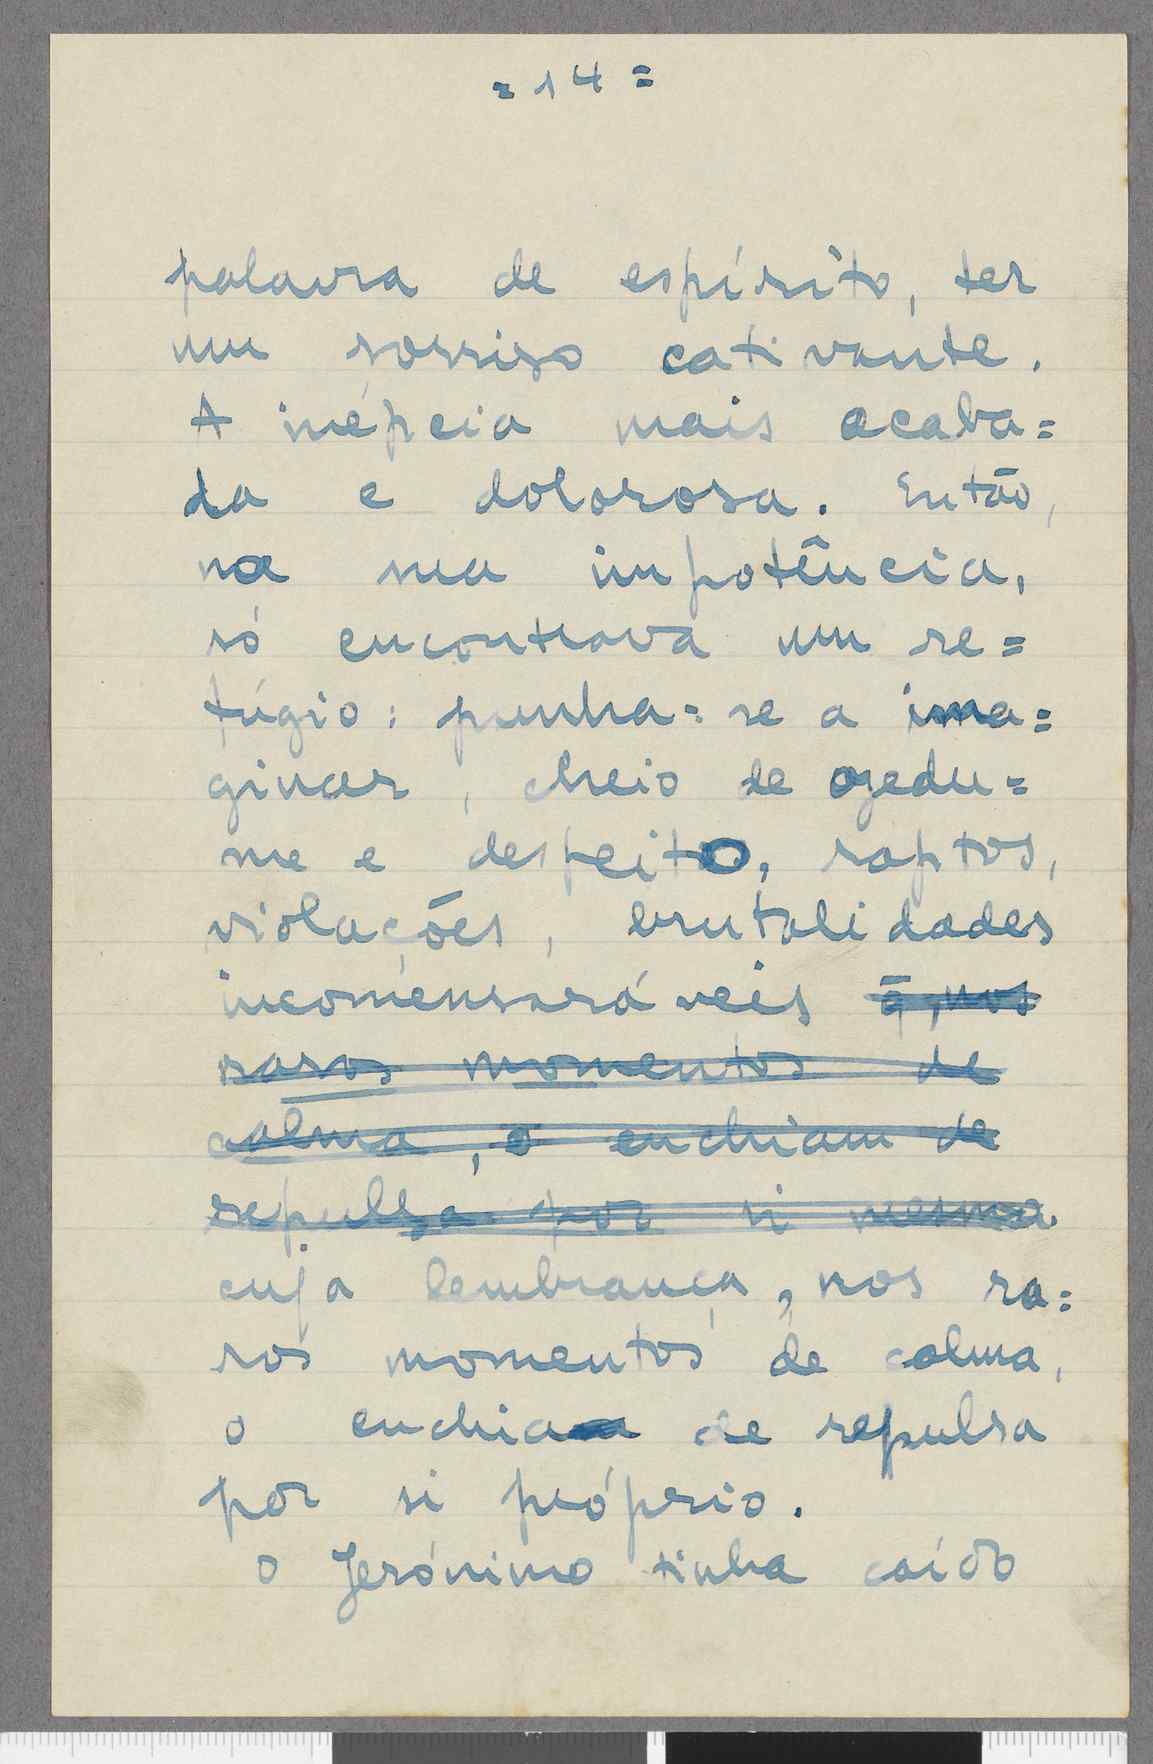 = 14 =
palavra de espírito, ter
um sorriso cativante.
A inépcia mais acaba=
da e dolorosa. Então,
na sua impotência,
só encontrava um re=
fúgio: punha=se a ima=
ginar, cheio de azedu=
me e despeito, raptos,
violações, brutalidades
incomensuráveis q, nos
raros momentos de
calma, o enchiam de
repulsa por si mesmo.
cuja lembrança, nos ra=
ros momentos de calma,
o enchia de repulsa
por si próprio.
O Jerónimo tinha caído